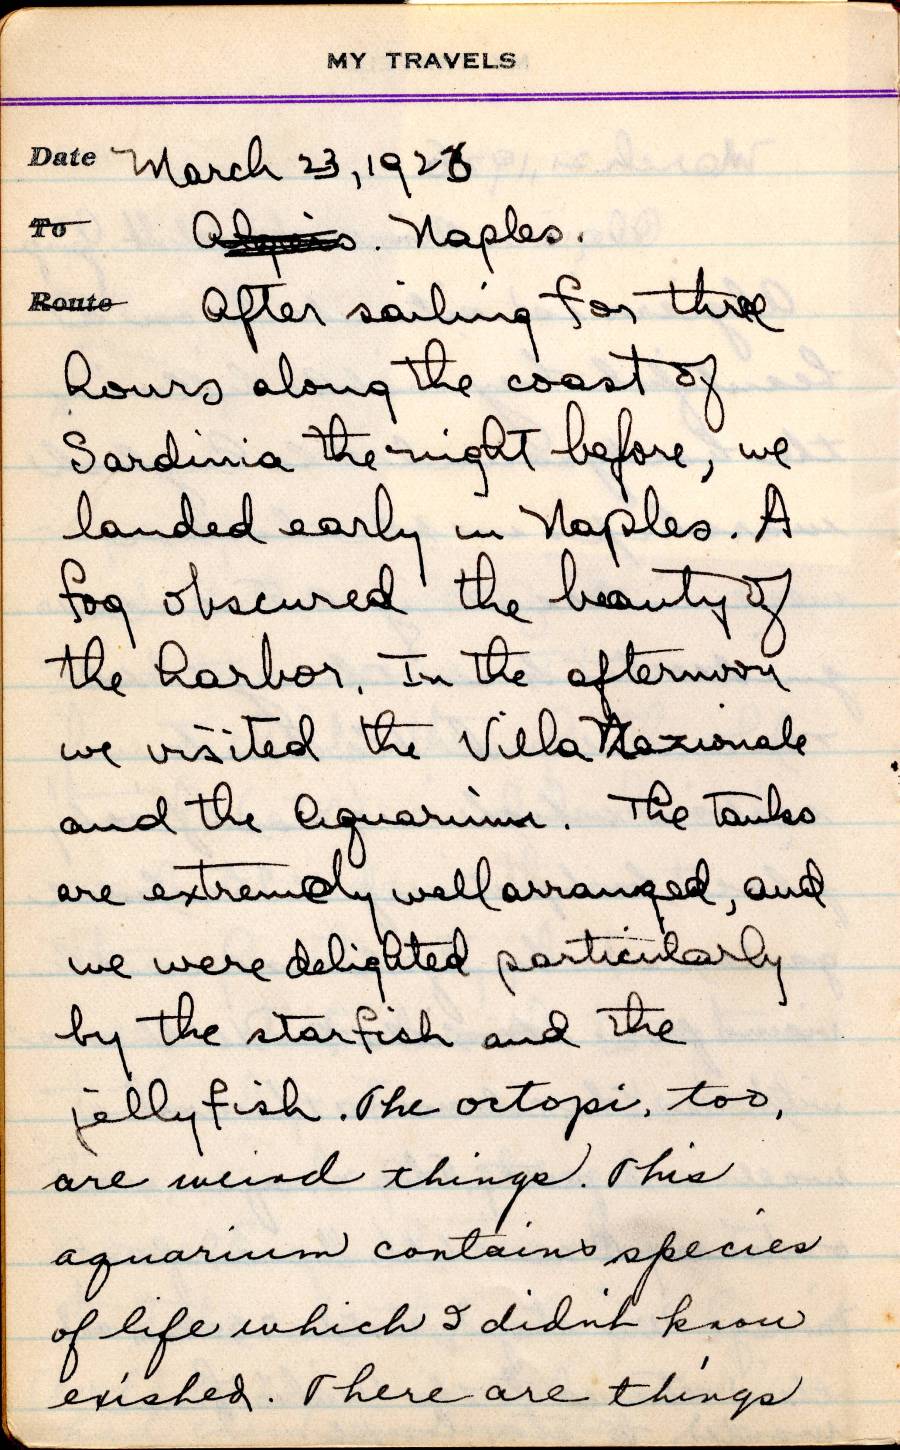 MY TRAVELS
Date March 23, 1926
To Algiers. Naples.
Route After sailing for three
hours along the coast of
Sardinia the night before, we
landed early in Naples. A
fog obscured the beauty of
the harbor. In the afternoon
we visited the Villa Nazionale
and the Aquarium. The tanks
are extremely well arranged, and
we were delighted particularly
by the starfish and the
jellyfish. The octopi, too,
are weird things. This
aquarium contains species
of life which I didn't know
existed. There are things